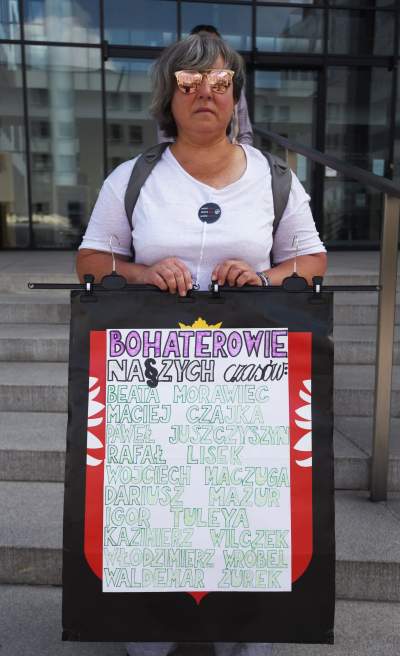 BOHATEROWIE
NA§ZYCH CZASÓW:
BEATA MORAWIEC
MACIEJ CZAJKA
PAWEŁ JUSZCZYSZYN
RAFAŁ LISEK
WOJCIECH MACZUGA
DARIUSZ MAZUR
IGOR TULEYA
KAZIMIERZ WILCZEK
WŁODZIMIERZ WRÓBEL
WALDEMAR ŻUREK